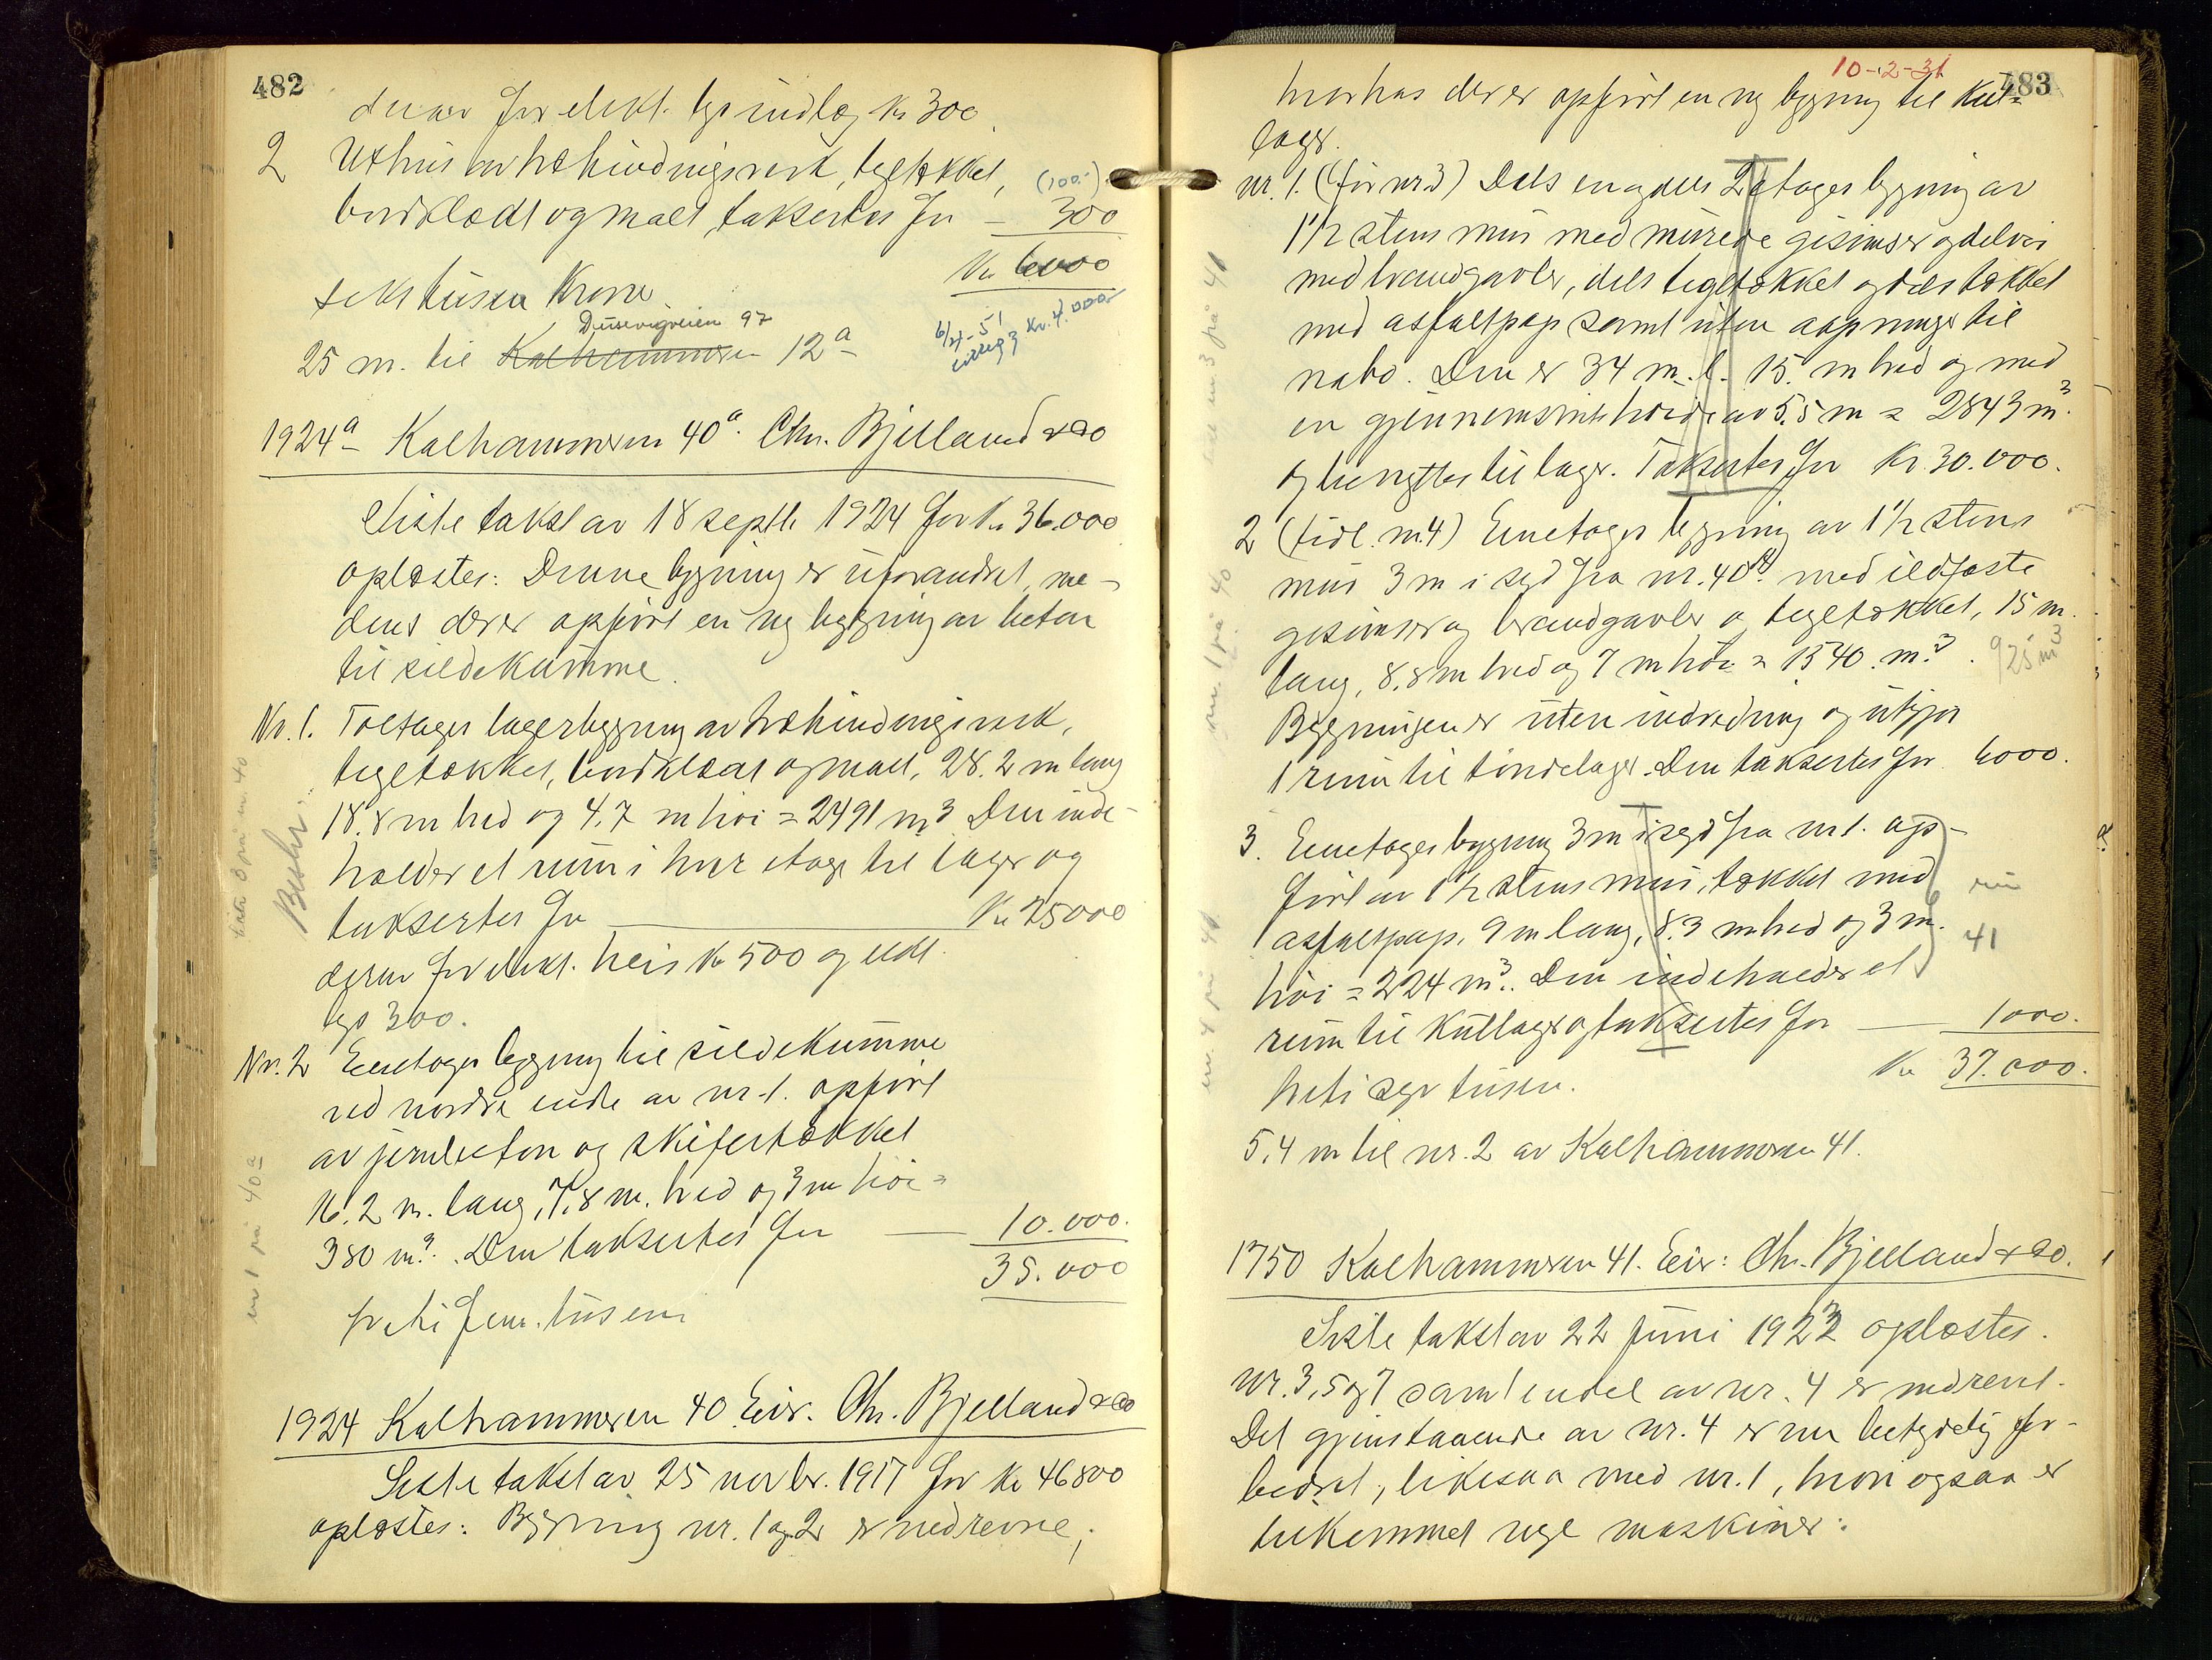 482
derav for elekt. lys indlæg Kr 300
2 Uthus av træbindingsverk, tegltækket, (100.-)
bordklædt og malt, taksertes for – 300
Kr 6000
seks tusen Kroner
Dusevigveien 97
25 m. til Kalhammeren 12a
6/4-51 Kr. 4.000
1924a Kalhammeren 40a. Chr. Bjelland & Co
Siste takst av 18 septb. 1924 for Kr 36.000
oplæstes: Denne bygning er uforandret, me-
dens der er opført en ny bygning av beton
til sildekumme.
Nr. 1. Toetages lagerbygning av træbindingsverk,
tegltækket, bordklædt og malt, 28.2 m lang
18.8 m bred og 4.7 m høi = 2491 m3 Den inde-
holder et rum i hver etage til lager og
taksertes for Kr 25000
derav for elekt. heis Kr 500 og elekt.
lys 300.
Nr. 2 Enetages bygning til sildekumme
ved nordre ende av nr. 1. opført
av jernbeton og skifertækket
16.2 m. lang, 7.8 m. bred og 3 m høi =
380 m3. Den taksertes for 10.000.
35.000
treti fem tusen
1924 Kalhammeren 40 Eier. Chr. Bjelland & Co
Siste takst av 25 novbr. 1917 for Kr 46800
oplæstes: Bygning nr. 1 og 2 er nedrevne,
nr 1 på 40a
10-2-31
483
hvorhos der er opført en ny bygning til Kul-
lager.
nr. 1. (før nr. 3) Dels en og dels 2 etages bygning av
1½ stens mur med murede gesimser og delvis
med brandgavler, dels tegltækket og dels tækket
med asfaltpap samt uten aapninger til
nabo. Den er 34 m. l. 15 m bred og med
en gjennemsnitshøide av 5.5 m = 2843 m3.
og benyttes til lager. Taksertes for Kr 30.000.
2 (tidl. nr. 4) Enetages bygning av 1½ stens
mur 3 m i syd fra nr. 40a med ildfaste
gesimser og brandgavler og tegltækket, 15 m.
lang, 8.8 m bred og 7 m høi = 1340. m.3. 925 m3
Bygningen er uten indredning og utgjør
1 rum til tøndelager. Den taksertes for 6000.
3. Enetages bygning 3 m i syd fra nr 1. op-
ført av 1½ stens mur, tækket med
asfaltpap. 9 m lang, 8.3 m bred og 3 m.
41
høi = 224 m3. Den indeholder et
rum til Kullager og taksertes for 1000.
Kr 37.000.
treti syv tusen.
5.4 m til nr. 2 av Kalhammeren 41.
1750 Kalhammeren 41. Eier: Chr. Bjelland & Co.
Siste takst av 22 Juni 1923 oplæstes.
Nr. 3, 5 og 7 samt endel av nr. 4 er nedrevet.
Det gjenstaaende av nr. 4 er nu betydelig for-
bedret, likesaa med nr. 1, hvori ogsaa er
tilkommet nye maskiner: